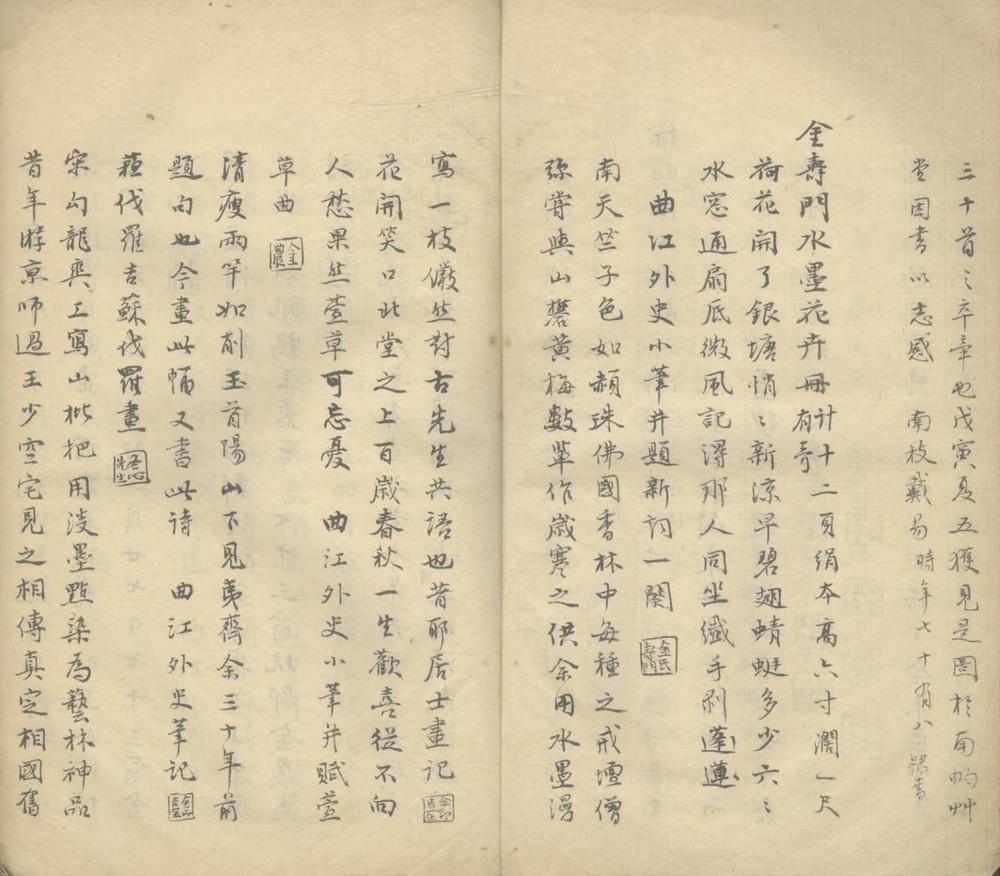 三十首之卒章也戊寅夏五獲見是圖於南畇艸
堂因書以志感 南枝戴易時年七十有八 隸書
金壽門水墨花卉冊 計十二頁絹本高六寸濶一尺有奇
荷花開了銀塘悄悄新涼早碧翅蜻蜓多少六六
水窓通扇底微風記得那人同坐纖手剝蓮蓮
曲江外史小筆并題新詞一闋 金氏壽門
南天竺子色如赬珠佛國香林中每種之戒壇僧
弥嘗與山礬黃梅數萆作歲寒之供余用水墨漫
寫一枝儼然對古先生共語也昔耶居士畫記 金印吉金
花開笑口北堂之上百歲春秋一生歡喜從不向
人愁果然萱草可忘憂 曲江外史小筆并賦萱
草曲 金農
清瘦兩竿如削玉首陽山下見夷齊余三十年前
題句也今畫此幅又書此詩 曲江外史筆記 金印吉金
蘓伐羅吉蘇伐羅畫 冬心先生
宋勾龍爽工寫山枇杷用淡墨點染為藝林神品
昔年游京師過王少空宅見之相傳真定相國舊